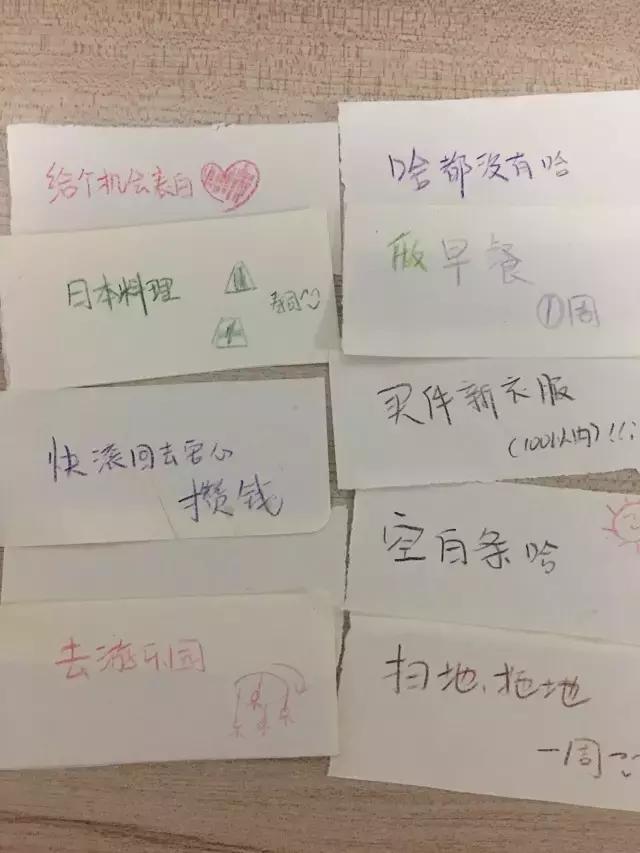 给个机会表白
日本料理
寿司
快滚回去安心
攒钱
去游乐园
啥都没有哈
做早餐
①周
买件新衣服
(100以内)!!;
空白条哈
扫地、拖地
一周